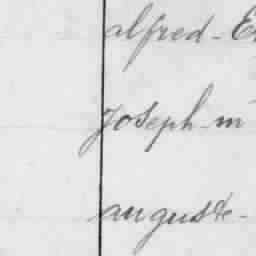 alfred-E
Joseph-m
auguste-